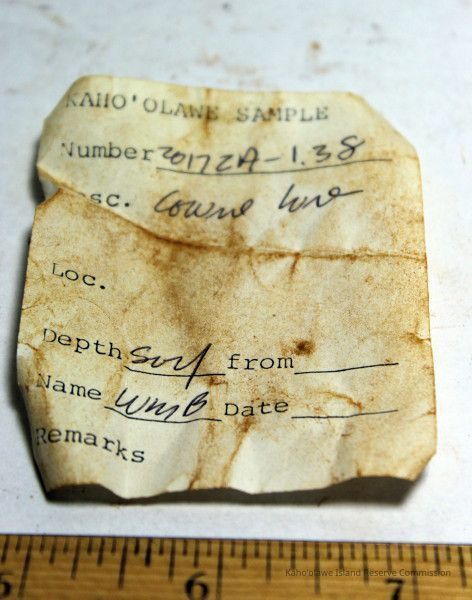 KAHO'OLAWE SAMPLE
Number 20172A-1.38
sc. Cowrie lure
Loc.
Depth Surf from
Name WMB Date
Remarks
5 6 7
Kaho'olawe Island Reserve Commission